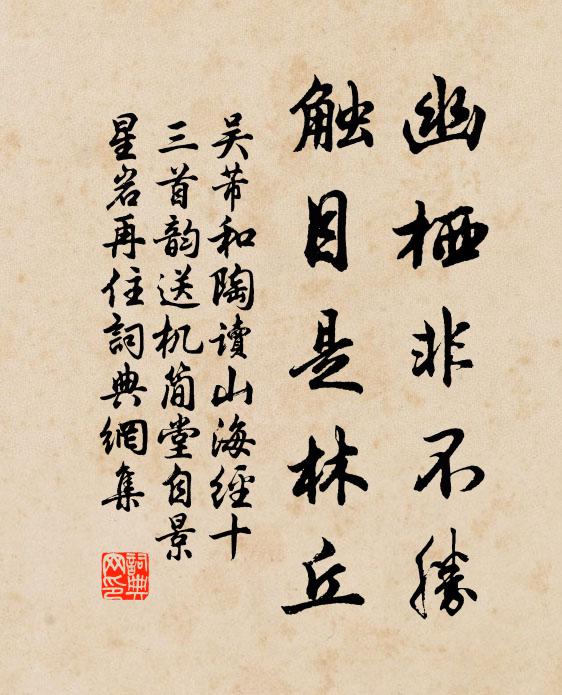 幽栖非不勝
触目是林丘
吴芾和陶讀山海經十
三首韵送机简堂自景
星岩再住詞典網集
詞典
网印